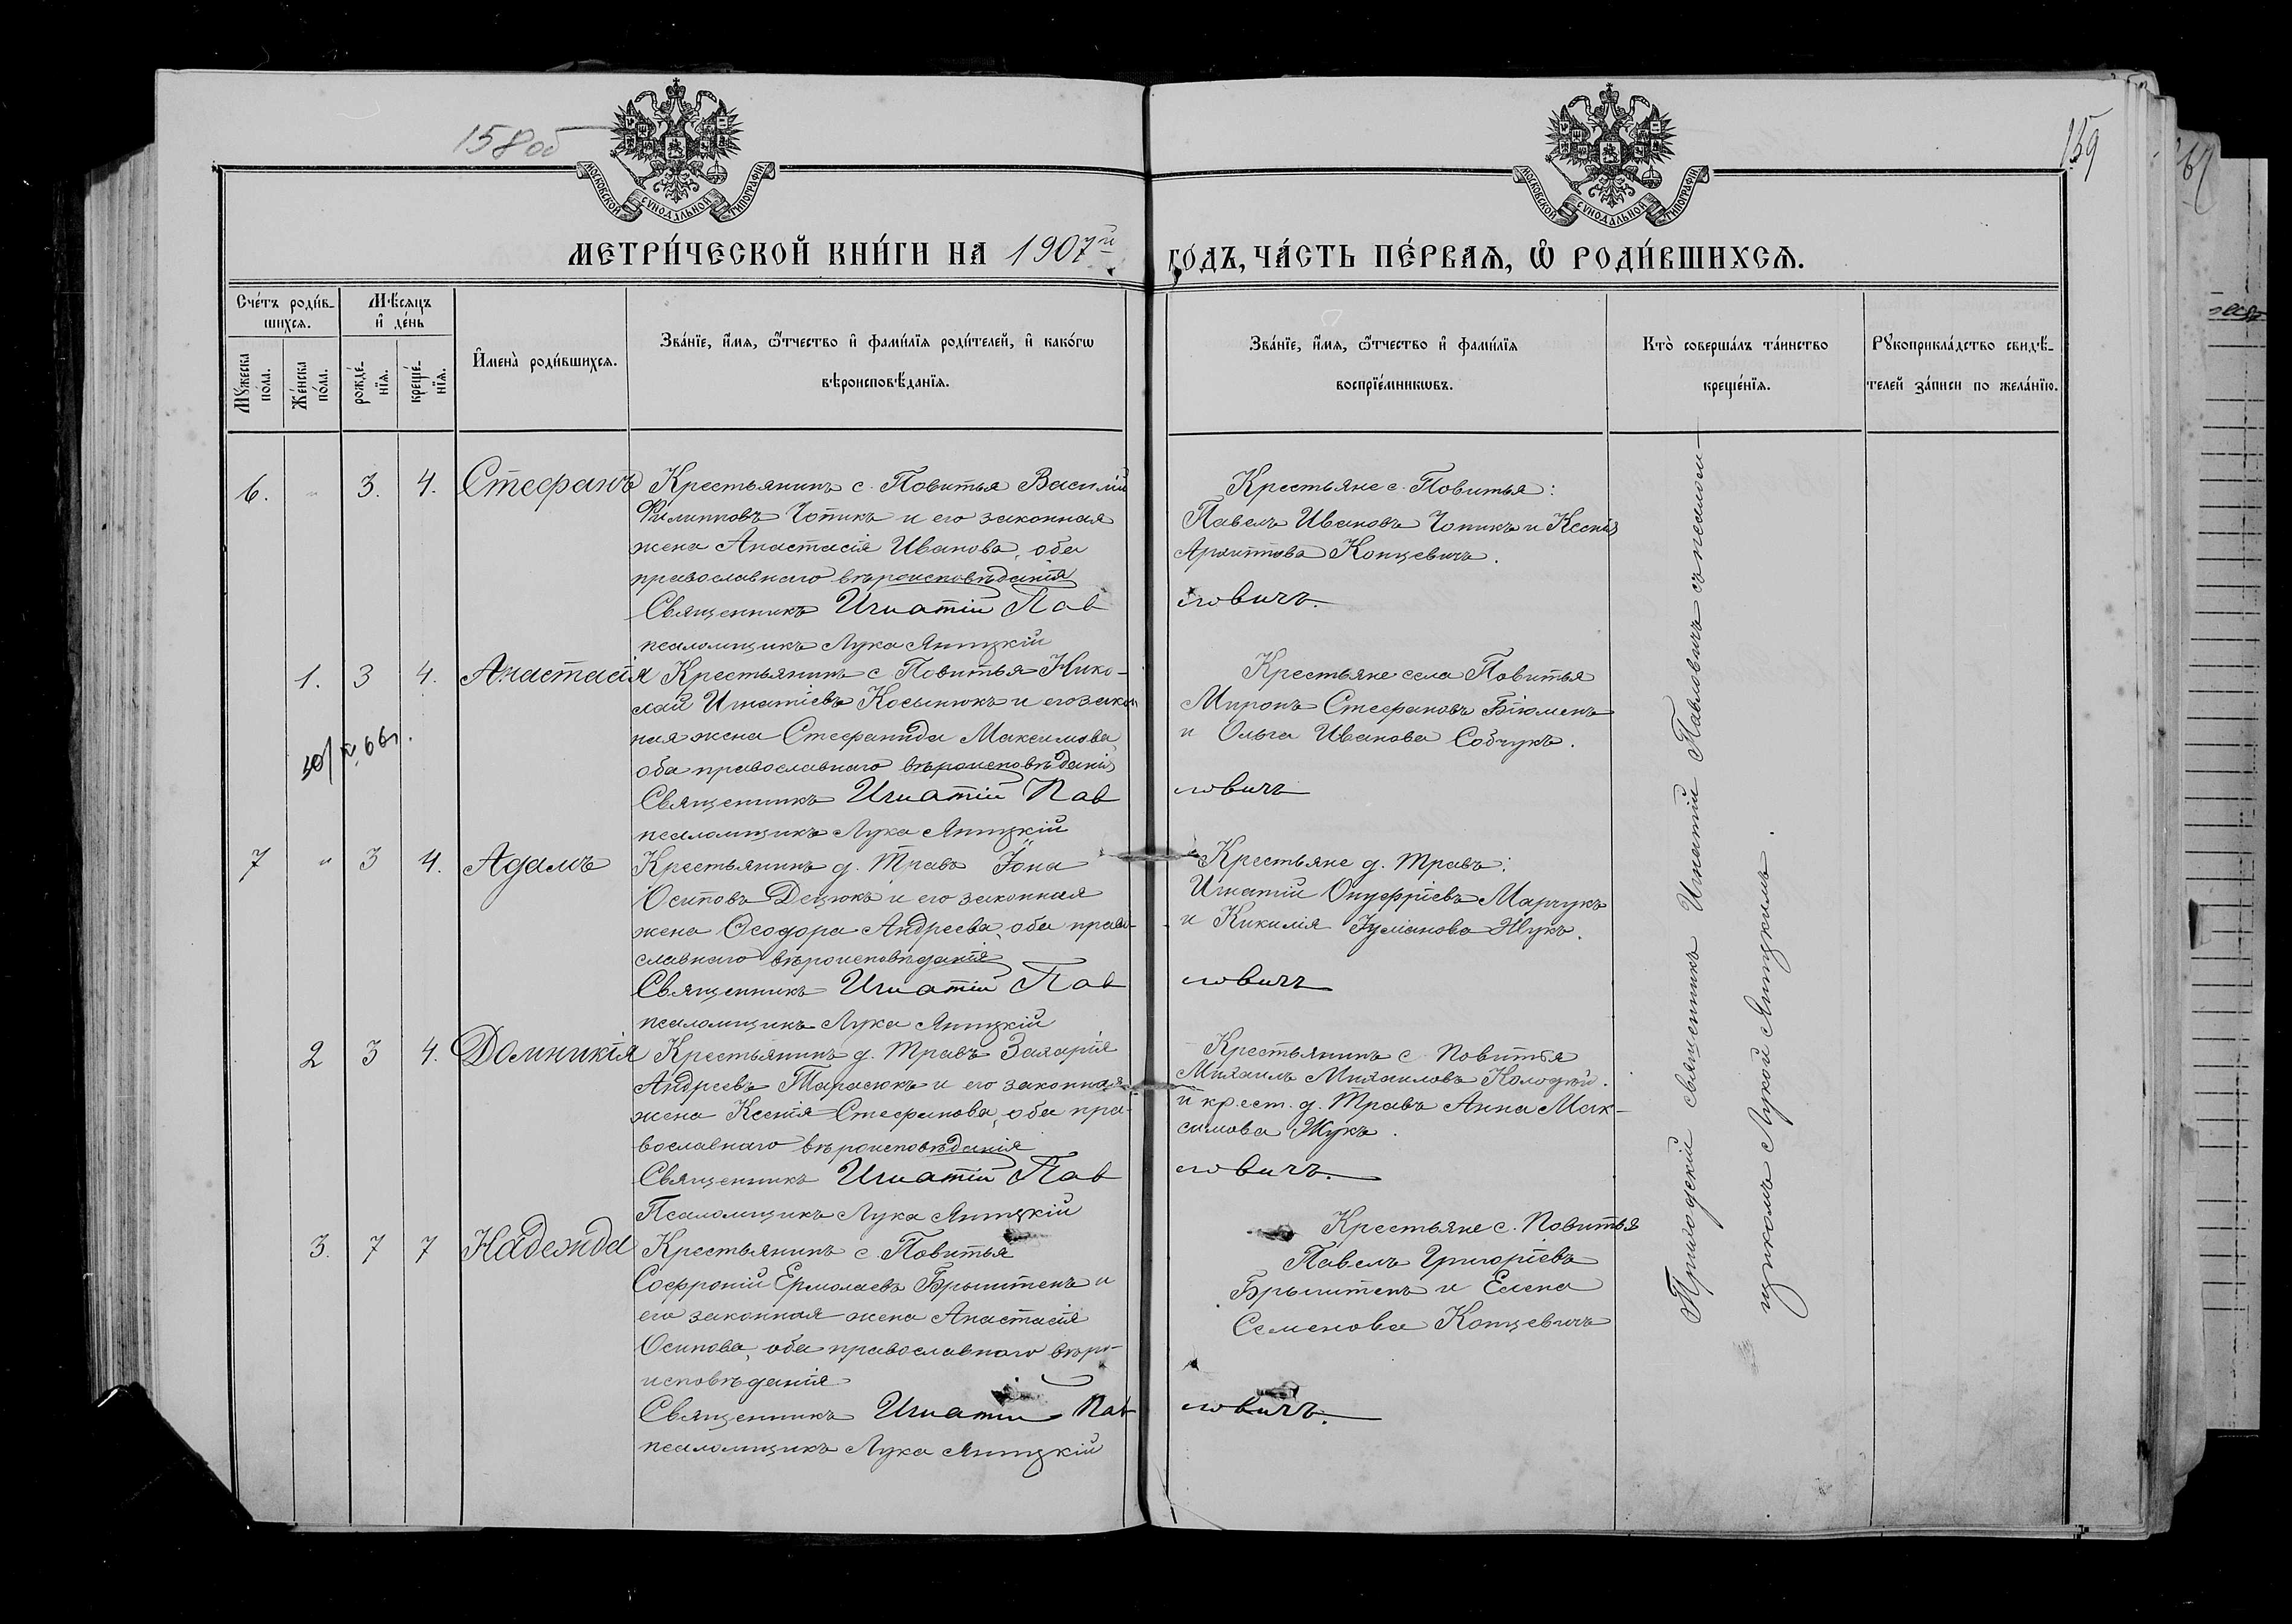 158об
159
МОСКОВСКОЙ СѴНОДАЛЬНОЙ ТИПОГРАФІИ
МОСКОВСКОЙ СѴНОДАЛЬНОЙ ТИПОГРАФІИ
МЕТРИ́ЧЕСКОЙ КНИ́ГИ НА 1907й ГО́ДЪ, ЧА́СТЬ ПЕ́РВАѦ, Ѡ҆ РОДИ́ВШИХСѦ.
Сче́тъ роди́в-
шихсѧ.
Мꙋ́жеска по́ла.
Же́нска по́ла.
Мѣ́сѧцъ
и҆ де́нь
рожде́-
нїѧ.
креще́-
нїѧ.
И҆мена̀ роди́вшихсѧ.
Зва́нїе, и҆́мѧ, ѻ҆́тчество и҆ фами́лїѧ роди́телей, и҆ како́гѡ
вѣроисповѣ́данїѧ.
Зва́нїе, и҆́мѧ, ѻ҆́тчество и҆ фами́лїѧ
воспрїе́мникѡвъ.
Кто̀ соверша́лъ та́инство
креще́нїѧ.
Рꙋкоприкла́дство свидѣ́-
телей за́писи по жела́нїю.
6. " 3. 4. Стефанъ
Крестьянинъ с. Повитья Василій
Филипповъ Чопикъ и его законная
жена Анастасія Иванова, оба
православнаго вѣроисповѣданія
Священникъ Игнатій Павловичъ.
псаломщикъ Лука Яницкій
Крестьяне с. Повитья:
Павелъ Ивановъ Чопикъ и Ксенія
Концевичъ.
1. 3 4. Анастасія
Крестьянинъ с Повитья Нико-
лай Игнатіевъ Косынюкъ и его закон
ная жена Стефанида Максимова
оба православнаго вѣроисповѣданія
Священникъ Игнатій Павловичъ
псаломщикъ Лука Яницкій
Крестьяне села Повитья
Миронъ Стефановъ
и Ольга Иванова Собчукъ.
7 " 3 4. Адамъ
Крестьянинъ д. Травъ Іона
Осиповъ Децюкъ и его законная
жена Ѳеодора Андреева, оба право-
славнаго вѣроисповѣданія
Священникъ Игнатій Павловичъ
псаломщикъ Лука Яницкій
Крестьяне д. Травъ:
Игнатій Онуфріевъ Марчукъ
и Кикилія Жукъ.
2 3 4. Домникія
Крестьянинъ д. Травъ Захарія
Андреевъ Тарасюкъ и его законная
жена Ксенія Стефанова, оба пра-
вославнаго вѣроисповѣданія
Священникъ Игнатій Павловичъ.
Псаломщикъ Лука Яницкій
Крестьянинъ с Повитья
Михаилъ Михаиловъ
и крест. д. Травъ Анна Мак-
симова Жукъ.
3. 7 7 Надежда
Крестьянинъ с. Повитья
Софроній Ермолаевъ Брыштенъ и
его законная жена Анастасія
Осипова, оба православнаго вѣро-
исповѣданія
Священникъ Игнатій Павловичъ.
псаломщикъ Лука Яницкій
Крестьяне с. Повитья
Павелъ Григоріевъ
Брыштенъ и Елена
Семенова Концевичъ
Приходскій священникъ Игнатій Павловичъ съ псалом-
щикомъ Лукой Яницкимъ.